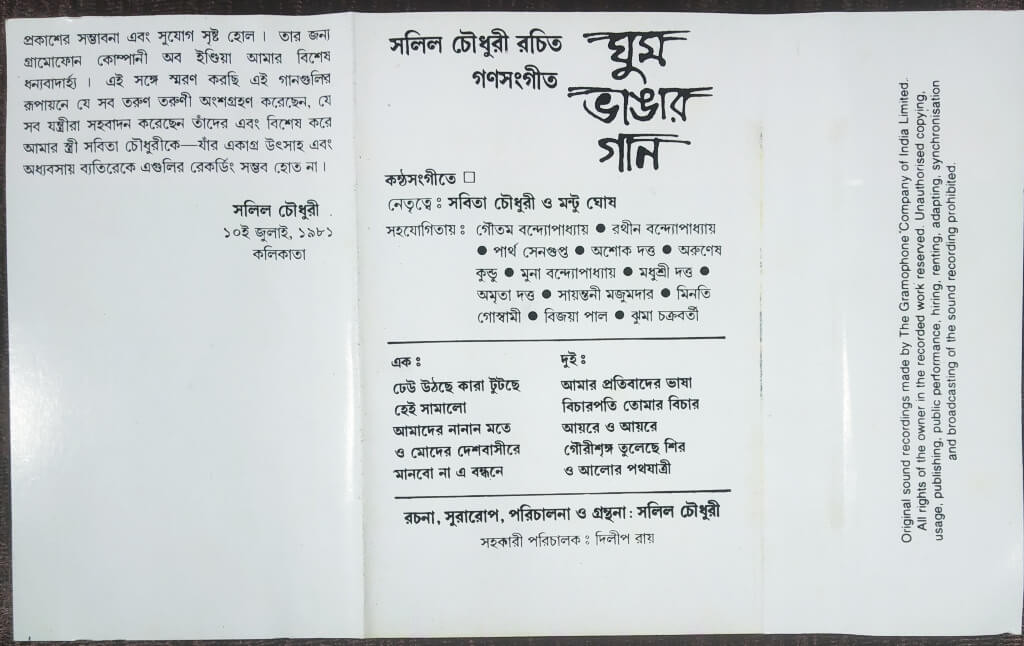 প্রকাশের সম্ভাবনা এবং সুযোগ সৃষ্ট হোল । তার জন্য
গ্রামোফোন কোম্পানী অব ইণ্ডিয়া আমার বিশেষ
ধন্যবাদার্হ্য । এই সঙ্গে স্মরণ করছি এই গানগুলির
রূপায়নে যে সব তরুণ তরুণী অংশগ্রহণ করেছেন, যে
সব যন্ত্রীরা সহবাদন করেছেন তাঁদের এবং বিশেষ করে
আমার স্ত্রী সবিতা চৌধুরীকে—যাঁর একাগ্র উৎসাহ এবং
অধ্যবসায় ব্যতিরেকে এগুলির রেকর্ডিং সম্ভব হোত না ।
সলিল চৌধুরী
১০ই জুলাই, ১৯৮১
কলিকাতা
সলিল চৌধুরী রচিত
গণসংগীত
ঘুম
ভাঙার
গান
কণ্ঠসংগীতে
নেতৃত্বে : সবিতা চৌধুরী ও মন্টু ঘোষ
সহযোগিতায় : গৌতম বন্দ্যোপাধ্যায় ● রথীন বন্দ্যোপাধ্যায়
● পার্থ সেনগুপ্ত ● অশোক দত্ত ● অরুণেষ
কুন্ডু ● মুনা বন্দ্যোপাধ্যায় ● মধুশ্রী দত্ত ●
অমৃতা দত্ত ● সায়ন্তনী মজুমদার ● মিনতি
গোস্বামী ● বিজয়া পাল ● ঝুমা চক্রবর্তী
এক :
ঢেউ উঠছে কারা টুটছে
হেই সামালো
আমাদের নানান মতে
ও মোদের দেশবাসীরে
মানবো না এ বন্ধনে
দুই :
আমার প্রতিবাদের ভাষা
বিচারপতি তোমার বিচার
আয়রে ও আয়রে
গৌরীশৃঙ্গ তুলেছে শির
ও আলোর পথযাত্রী
রচনা, সুরারোপ, পরিচালনা ও গ্রন্থনা : সলিল চৌধুরী
সহকারী পরিচালক : দিলীপ রায়
Original sound recordings made by The Gramophone Company of India Limited.
All rights of the owner in the recorded work reserved. Unauthorised copying,
usage, publishing, public performance, hiring, renting, adapting, synchronisation
and broadcasting of the sound recording prohibited.